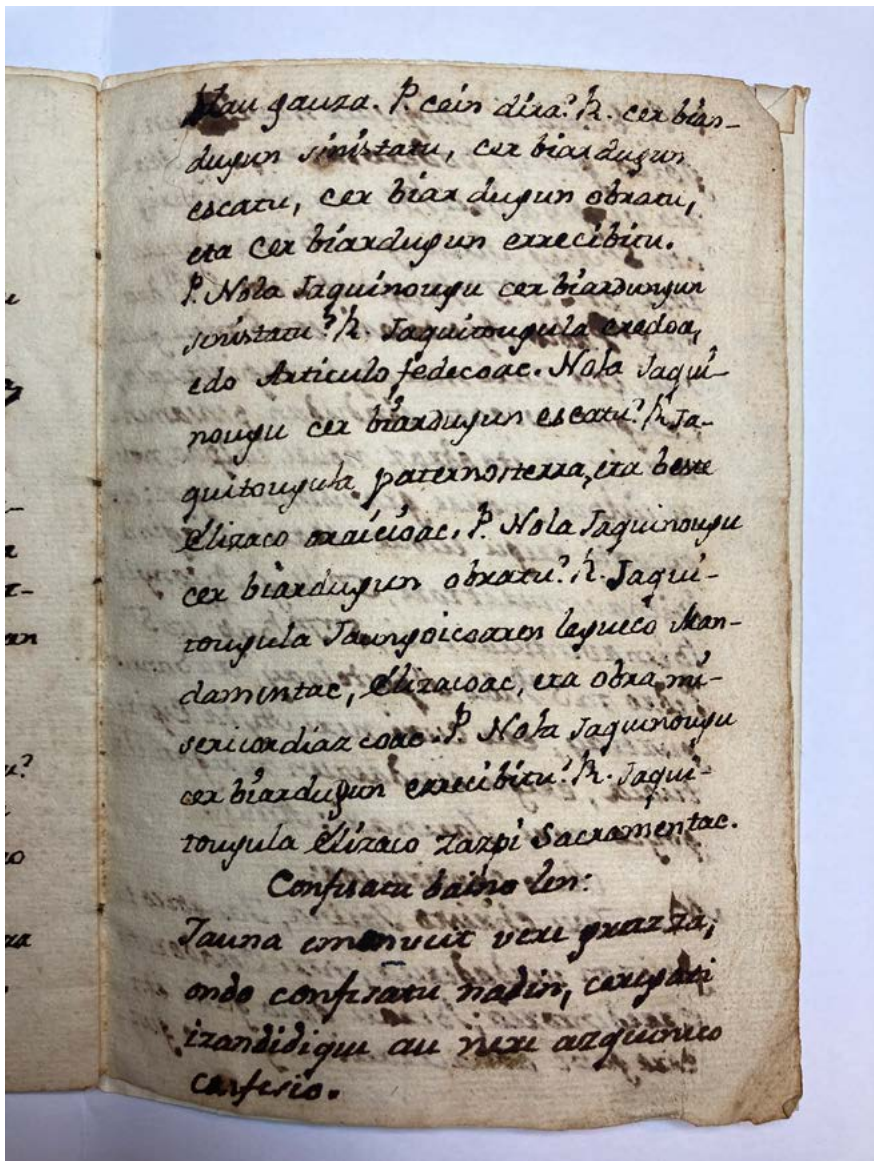 lau gauza. P. cein dira? R. cer biar-
dugun sinistatu, cer biardugun
escatu, cer biar dugun obratu,
eta cer biardugun errecibitu.
P. Nola Jaquinougu cer biardungun
sinistatu? R. Jaquitougula credoa,
edo Articulo fedecoac. Nola Jaqui-
nougu cer biardugun escatu? R. Ja-
quitougula paternosterra, eta beste
Elizaco oraicioac. P. Nola Jaquinougu
cer biardugun obratu? R. Jaqui-
tougula Jaungoicoaren legueco Man-
damentac, Elizacoac, eta obra mi-
sericordiazcoac. P. Nola Jaquinougu
cer biardugun errecibitu? R. Jaqui-
tougula Elizaco zazpi Sacramentac.
Confesatu baino len:
Jauna emanveit vere grazia,
ondo confesatu nadin, ceren
izandidiqu au nere azqueneco
confesio.